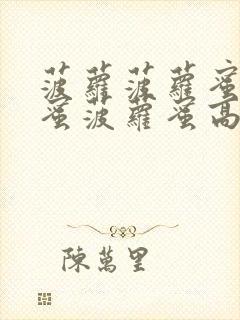 菠蘿菠蘿蜜
蜜菠蘿蜜高
陳萬里